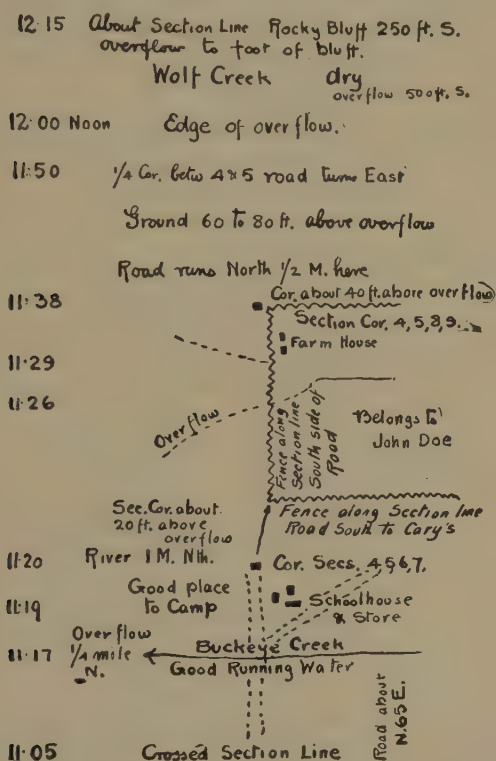 12.15 About Section Line Rocky Bluff 250 ft. S.
overflow to foot of bluff.
Wolf Creek dry
overflow 500ft. S.
12.00 Noon Edge of overflow.
11:50 1/4 Cor. betw 4 & 5 road turns East
Ground 60 to 80 ft. above overflow
Road runs North 1/2 M. here
11:38 Cor. about 40 ft. above overflow
Section Cor. 4, 5, 8, 9.
Farm House
11:29
11.26
Overflow
Fence along
Section line
South side of
Road
Belongs to
John Doe
Sec. Cor. about
20 ft. above
overflow
Fence along Section line
Road South to Cary's
11:20 River 1 M. Nth. Cor. Secs. 4, 5, 6, 7.
11.19 Good place
to Camp
Schoolhouse
& Store
11.17 Overflow
1/4 mile
N.
Buckeye Creek
Good Running Water
Road about
N.65 E.
11.05 Crossed Section Line